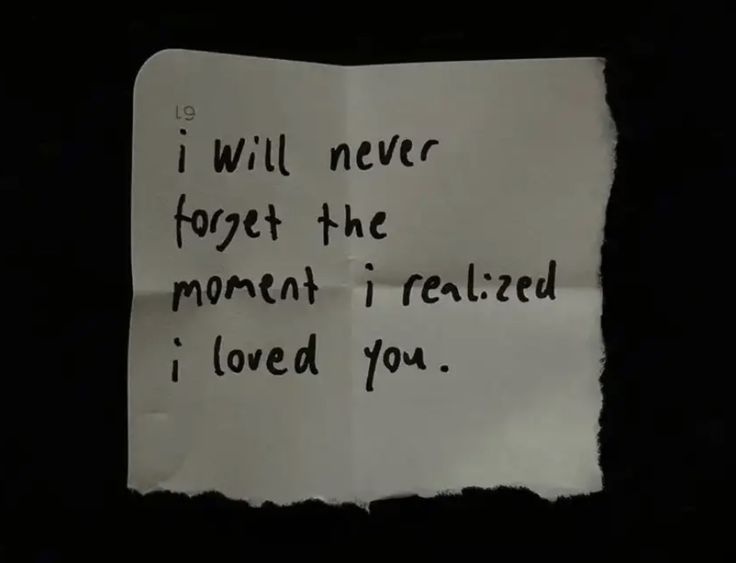 19
i will never
forget the
moment i realized
i loved you.